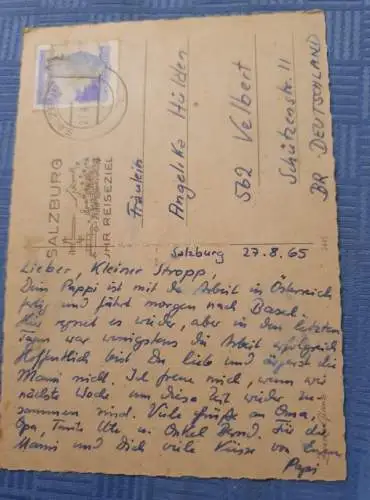 SALZBURG
IHR REISEZIEL
Fräulein
Angelika Hülden
562 Velbert
Schützenstr. 11
BR-DEUTSCHLAND
Salzburg 27.8.65
Lieber, Kleiner Stropp,
Dein Pappi ist mit der Arbeit in Österreich
fertig und fährt morgen nach Basel.
Hier regnet es wieder, aber in den letzten
Tagen war wenigstens die Arbeit erfolgreich
Hoffentlich bist Du lieb und ärgerst die
Mami nicht. Ich freue mich, wenn wir
nächste Woche um diese Zeit wieder zu-
sammen sind. Viele Grüße an Oma,
Opa, Tante Ute u. Onkel Bernd. Für die
Mami und Dich viele Küsse von Eurem
Papi